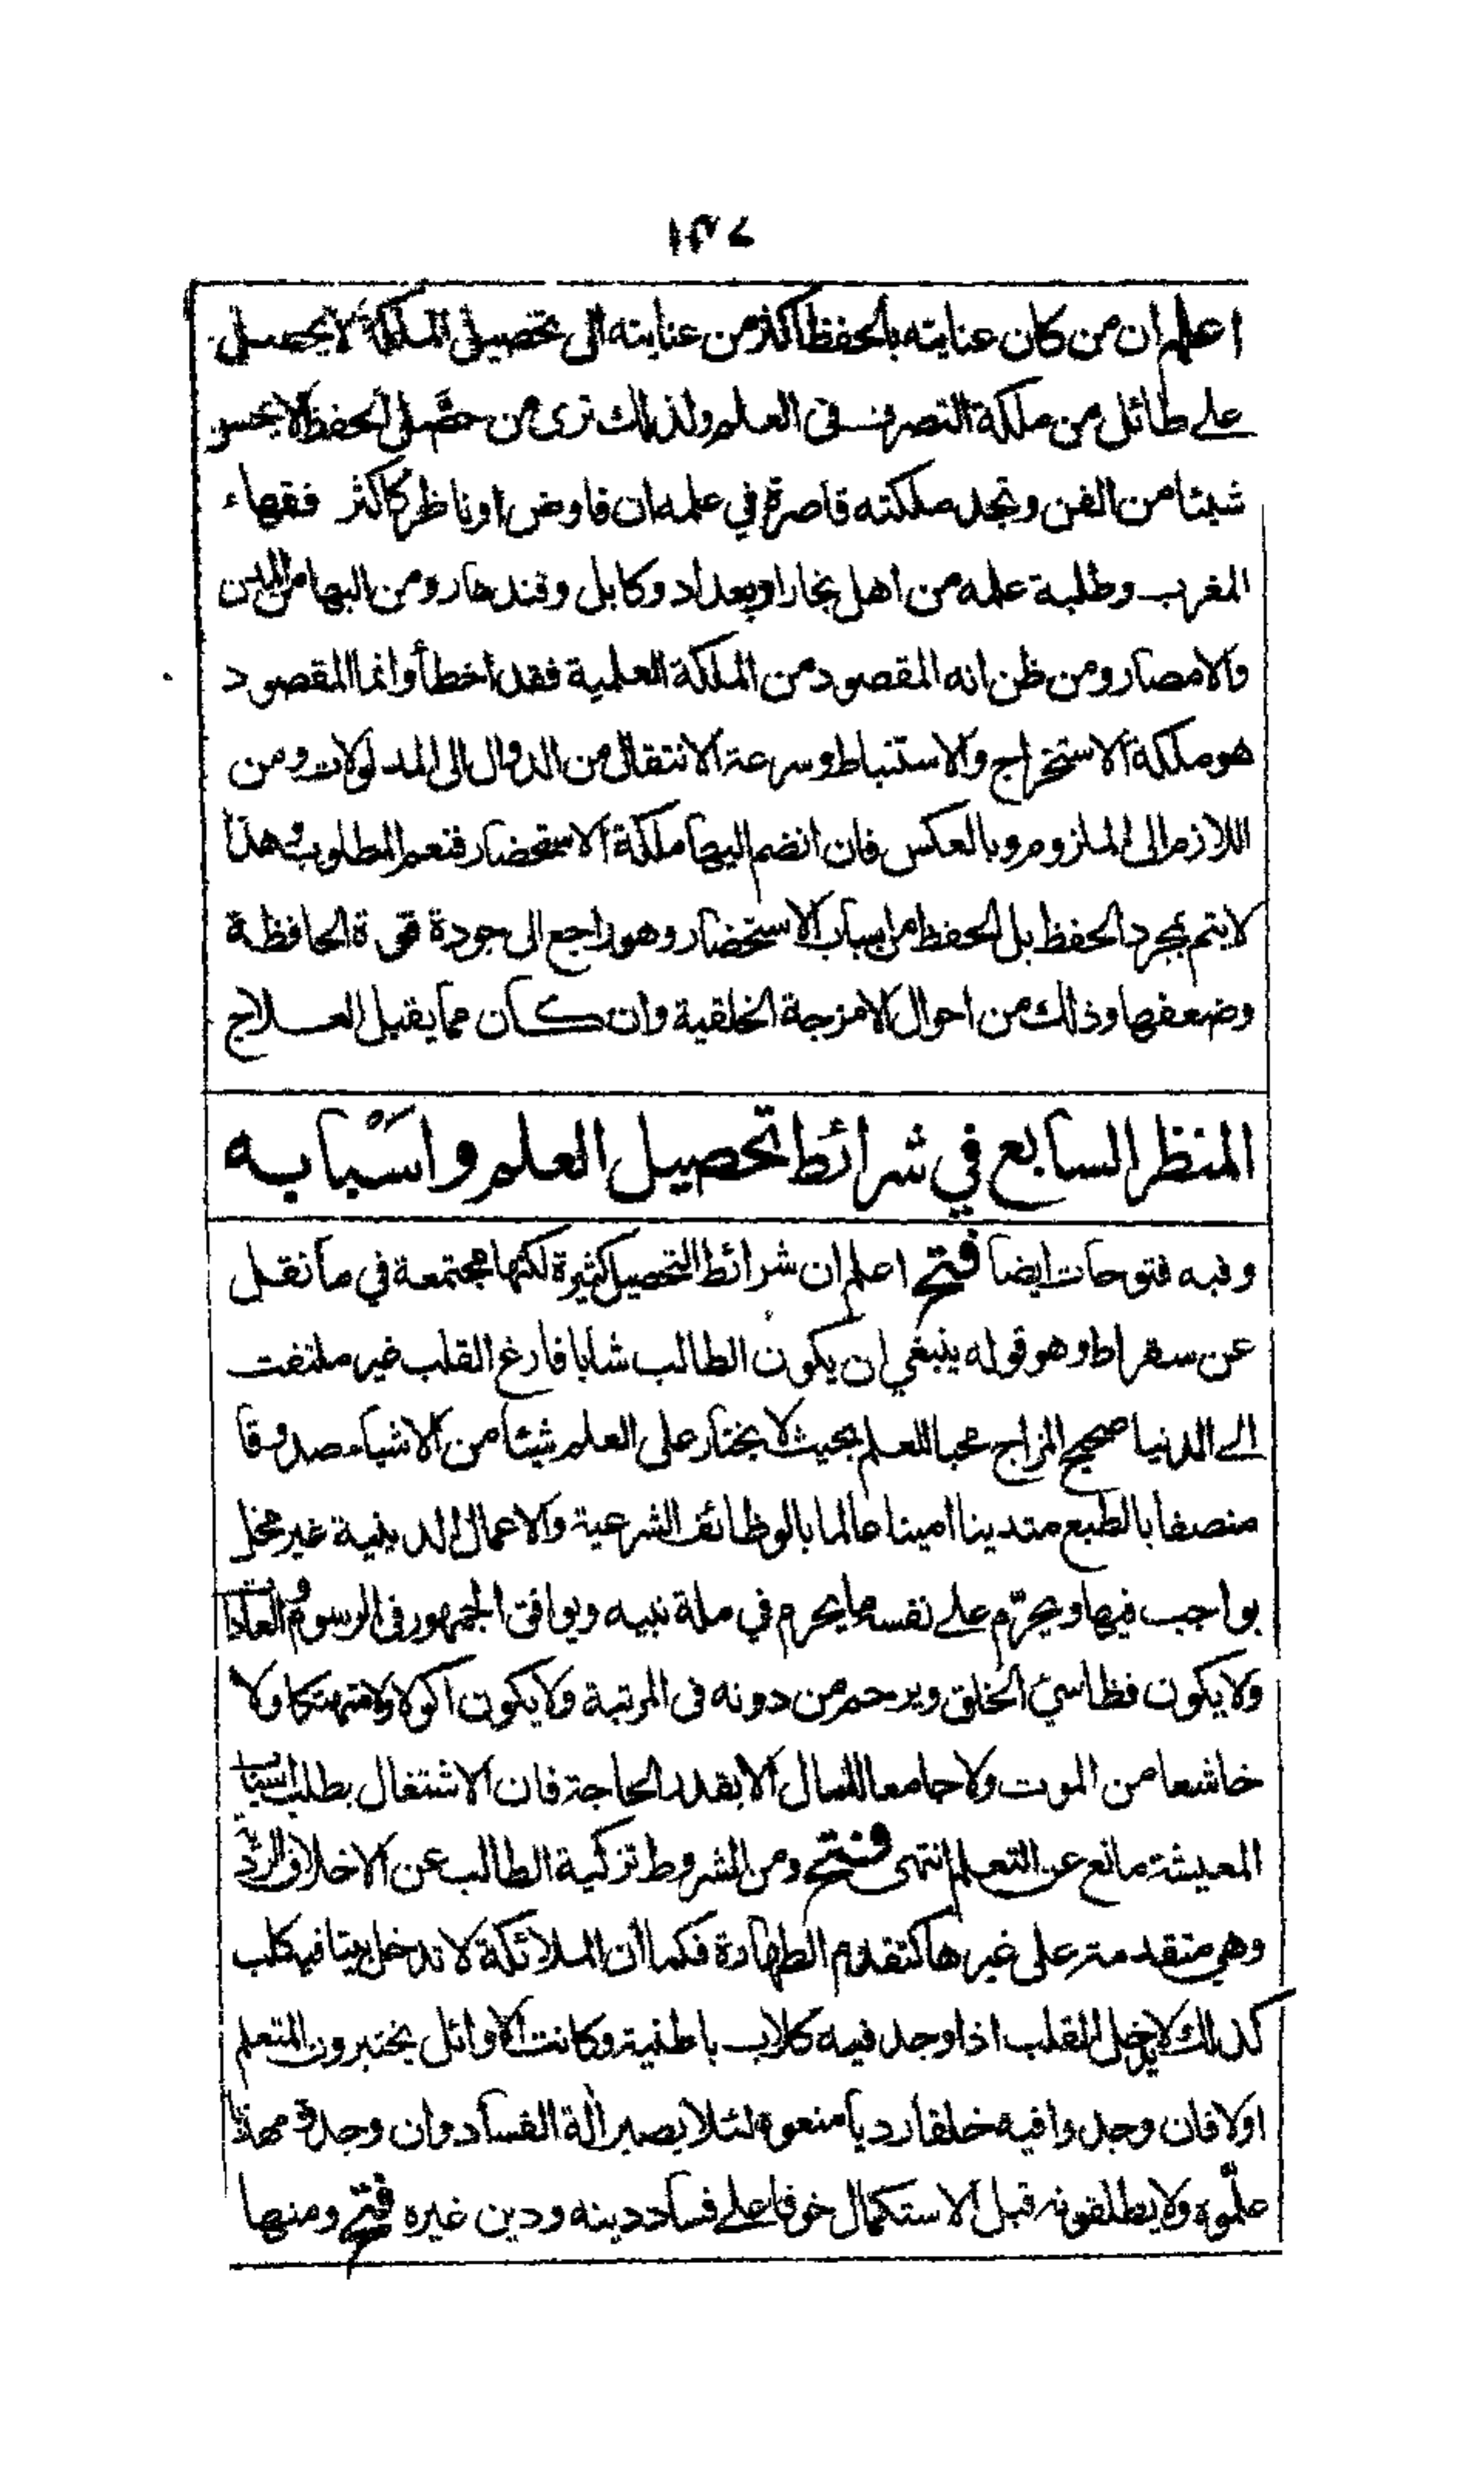 اعلم ان من كان عنايته بالحفظ اكثر من عنايته الى تحصيل الملكة لا يحصل
على طائل من ملكة التصرف فى العلم ولذلك ترى من حصّل الحفظ لا يحسن
شيئا من الفن وتجد ملكته قاصرة في علمه ان فاوض او ناظر كاكثر فقهاء
المغرب وطلبة علمه من اهل بخارا وبغداد وكابل وقندهار ومن اليها من المدن
والامصار ومن ظن انه المقصود من الملكة العلمية فقد اخطأ وانما المقصود
هو ملكة الاستخراج والاستنباط وسرعة الانتقال من الدوال الى المدلولات ومن
اللازم الى الملزوم وبالعكس فان انضم اليها ملكة الاستحضار فنعم المطلوب وهذا
لا يتم بمجرد الحفظ بل الحفظ من اسباب الاستحضار وهو راجع الى جودة قوة الحافظة
وضعفها وذلك من احوال الامزجة الخلقية وان كان مما يقبل العلاج
المنظر السابع في شرائط تحصيل العلم واسبابه
وفيه فتوحات ايضا فتح اعلم ان شرائط التحصيل كثيرة لكنها مجتمعة في ما نقل
عن سقراط وهو قوله ينبغي ان يكون الطالب شابا فارغ القلب غير ملتفت
الى الدنيا صحيح المزاج محبا للعلم بحيث لا يختار على العلم شيئا من الاشياء صدوقا
منصفا بالطبع متدينا امينا عالما بالوظائف الشرعية والاعمال الدينية غير مخل
بواجب فيها ويحرّم على نفسه ما يحرم في ملة نبيه ويوافق الجمهور فى الرسوم والعادات
ولا يكون فظا سيئ الخلق ويرحم من دونه فى المرتبة ولا يكون اكولا ولا متهتكا ولا
خاشعا من الموت ولا جامعا للمال الا بقدر الحاجة فان الاشتغال بطلب اسباب
المعيشة مانع عن التعلم انتهى فتح ومن الشروط تزكية الطالب عن الاخلاق الردية
وهي متقدمة على غيرها كتقدم الطهارة فكما ان الملائكة لا تدخل بيتا فيه كلب
كذلك لا يدخل القلب اذا وجد فيه كلاب باطنية وكانت الاوائل يختبرون المتعلم
اولا فان وجدوا فيه خلقا رديا منعوه لئلا يصير آلة الفساد وان وجدوه مهذبا
علّموه ولا يطلقونه قبل الاستكمال خوفا على فساد دينه ودين غيره فتح ومنها